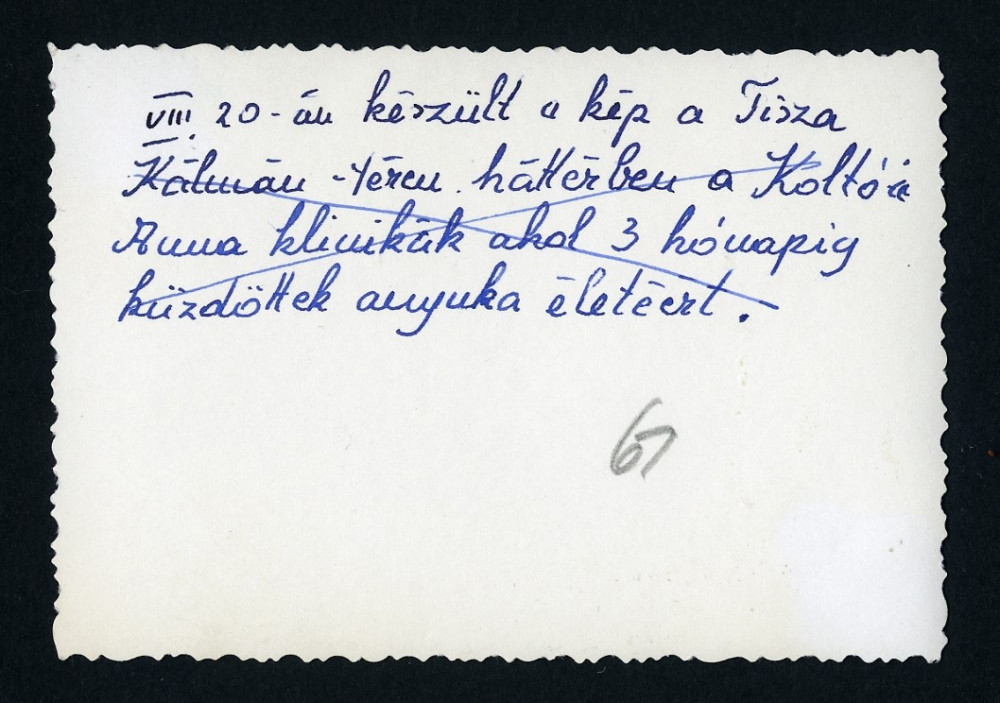 VIII. 20-án készült a kép a Tisza
Kálmán-téren háttérben a Koltói
Anna klinikák ahol 3 hónapig
küzdöttek anyuka életéért.
67